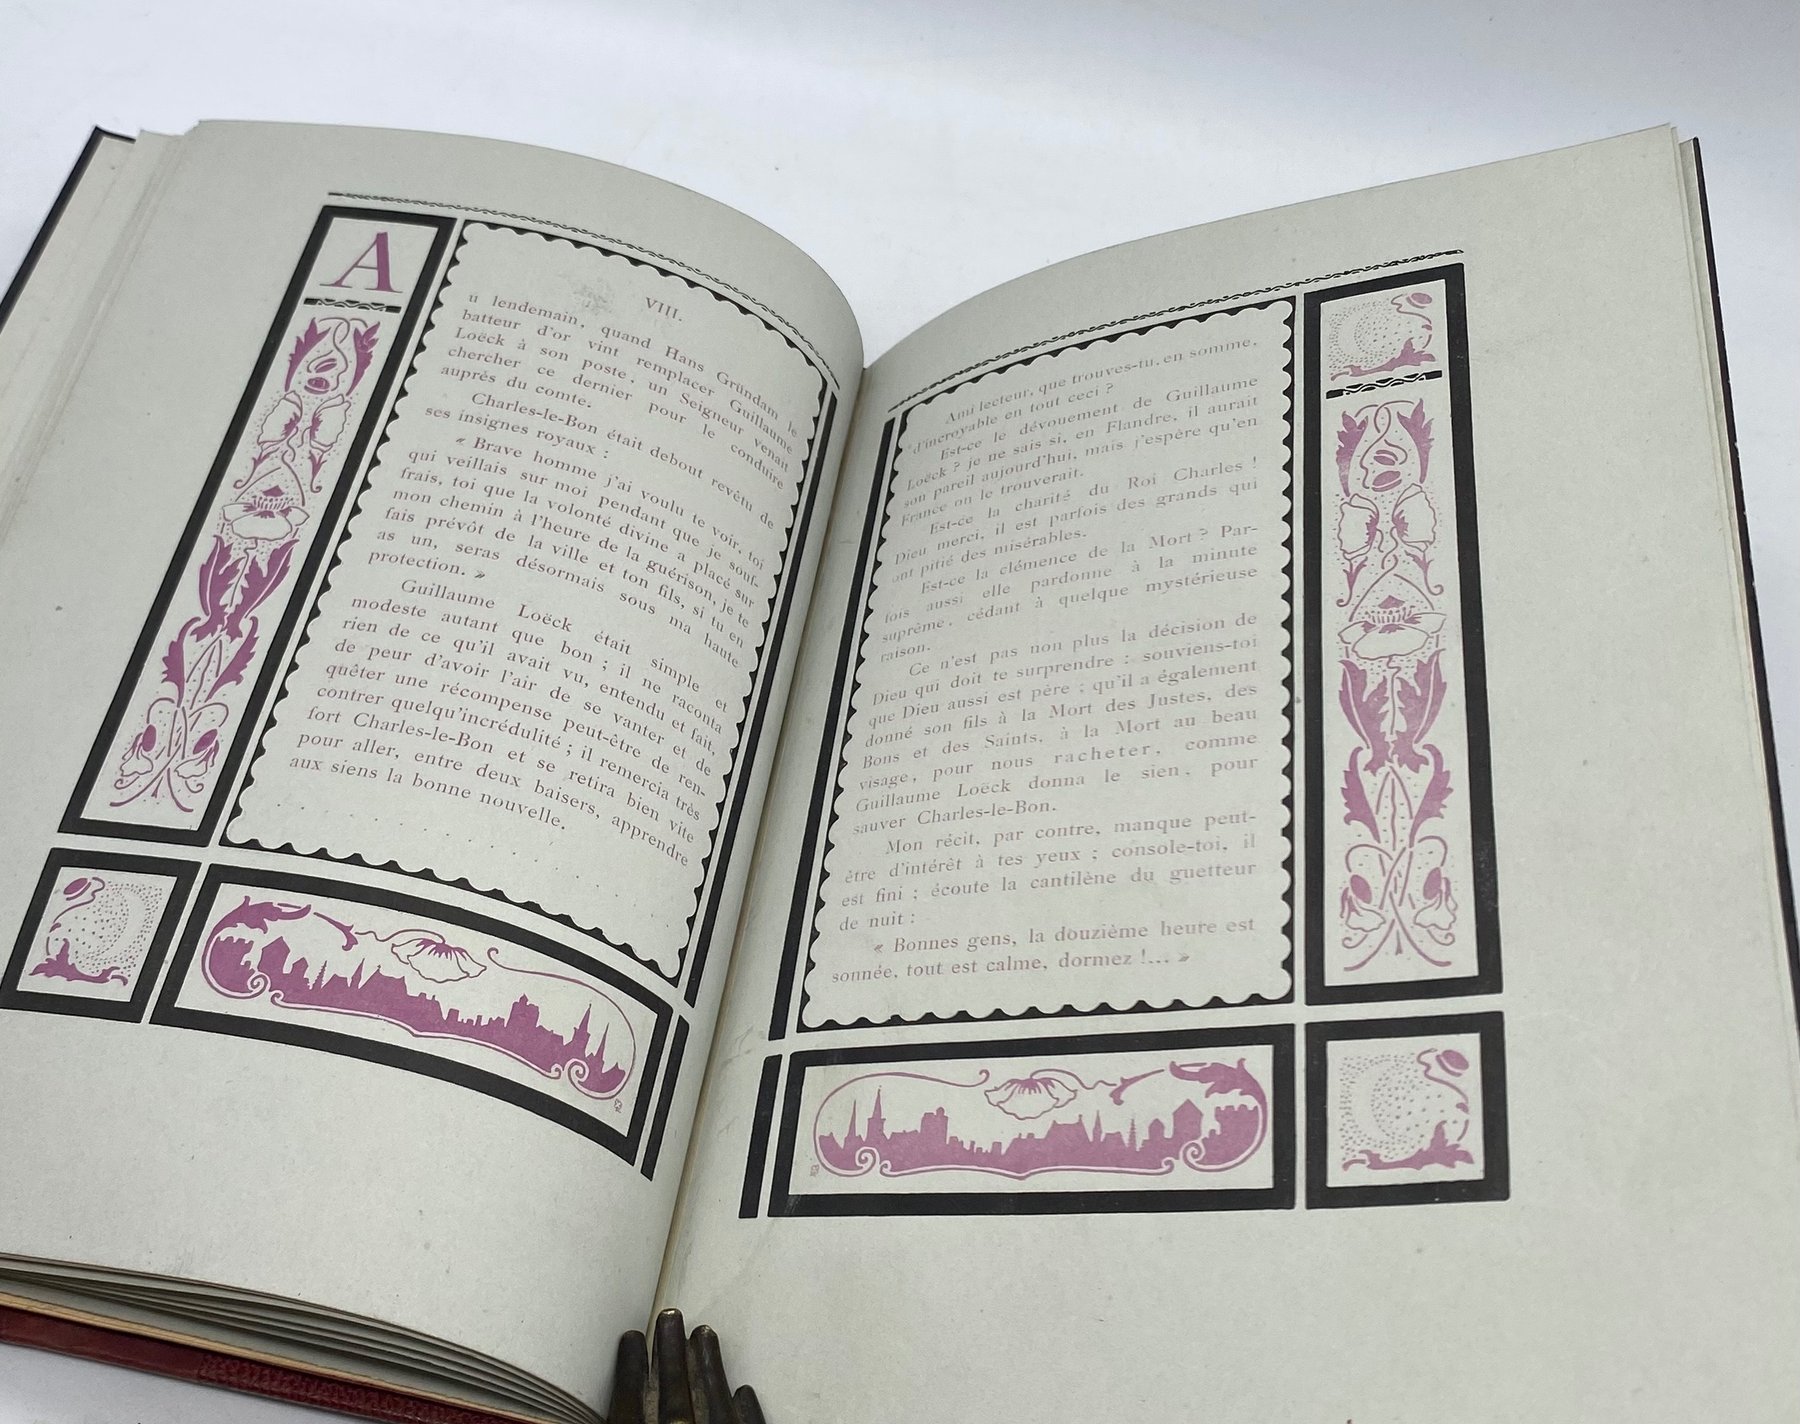 VIII.
A
u lendemain, quand Hans Gründam le
batteur d'or vint remplacer Guillaume
Loëck à son poste, un Seigneur venait
chercher ce dernier pour le conduire
auprès du comte.
Charles-le-Bon était debout revêtu de
ses insignes royaux :
« Brave homme j'ai voulu te voir, toi
qui veillais sur moi pendant que je souf-
frais, toi que la volonté divine a placé sur
mon chemin à l'heure de la guérison, je te
fais prévôt de la ville et ton fils, si tu en
as un, seras désormais sous ma haute
protection. »
Guillaume Loëck était simple et
modeste autant que bon ; il ne raconta
rien de ce qu'il avait vu, entendu et fait,
de peur d'avoir l'air de se vanter et de
quêter une récompense peut-être de ren-
contrer quelqu'incrédulité ; il remercia très
fort Charles-le-Bon et se retira bien vite
pour aller, entre deux baisers, apprendre
aux siens la bonne nouvelle.
Ami lecteur, que trouves-tu, en somme,
d'incroyable en tout ceci ?
Est-ce le dévouement de Guillaume
Loëck ? je ne sais si, en Flandre, il aurait
son pareil aujourd'hui, mais j'espère qu'en
France on le trouverait.
Est-ce la charité du Roi Charles !
Dieu merci, il est parfois des grands qui
ont pitié des misérables.
Est-ce la clémence de la Mort ? Par-
fois aussi elle pardonne à la minute
suprême, cédant à quelque mystérieuse
raison.
Ce n'est pas non plus la décision de
Dieu qui doit te surprendre : souviens-toi
que Dieu aussi est père ; qu'il a également
donné son fils à la Mort des Justes, des
Bons et des Saints, à la Mort au beau
visage, pour nous racheter, comme
Guillaume Loëck donna le sien, pour
sauver Charles-le-Bon.
Mon récit, par contre, manque peut-
être d'intérêt à tes yeux ; console-toi, il
est fini ; écoute la cantilène du guetteur
de nuit :
« Bonnes gens, la douzième heure est
sonnée, tout est calme, dormez !... »